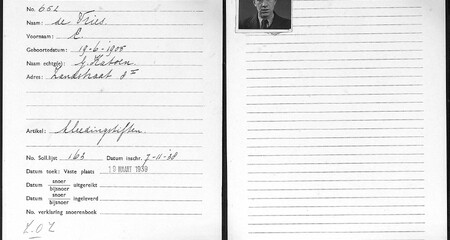 No. 652
Naam: de Vries.
Voornaam: E.
Geboortedatum: 19-6-1905
Naam echtg(e)
Adres: Zandstraat 8
Artikel:
No. Soll.lijst 163 Datum inschr. 7-11-'38
Datum toek: Vaste plaats 10 MAART 1939
Datum snoer bijsnoer uitgereikt
Datum snoer bijsnoer ingeleverd
No. verklaring snoerenboek